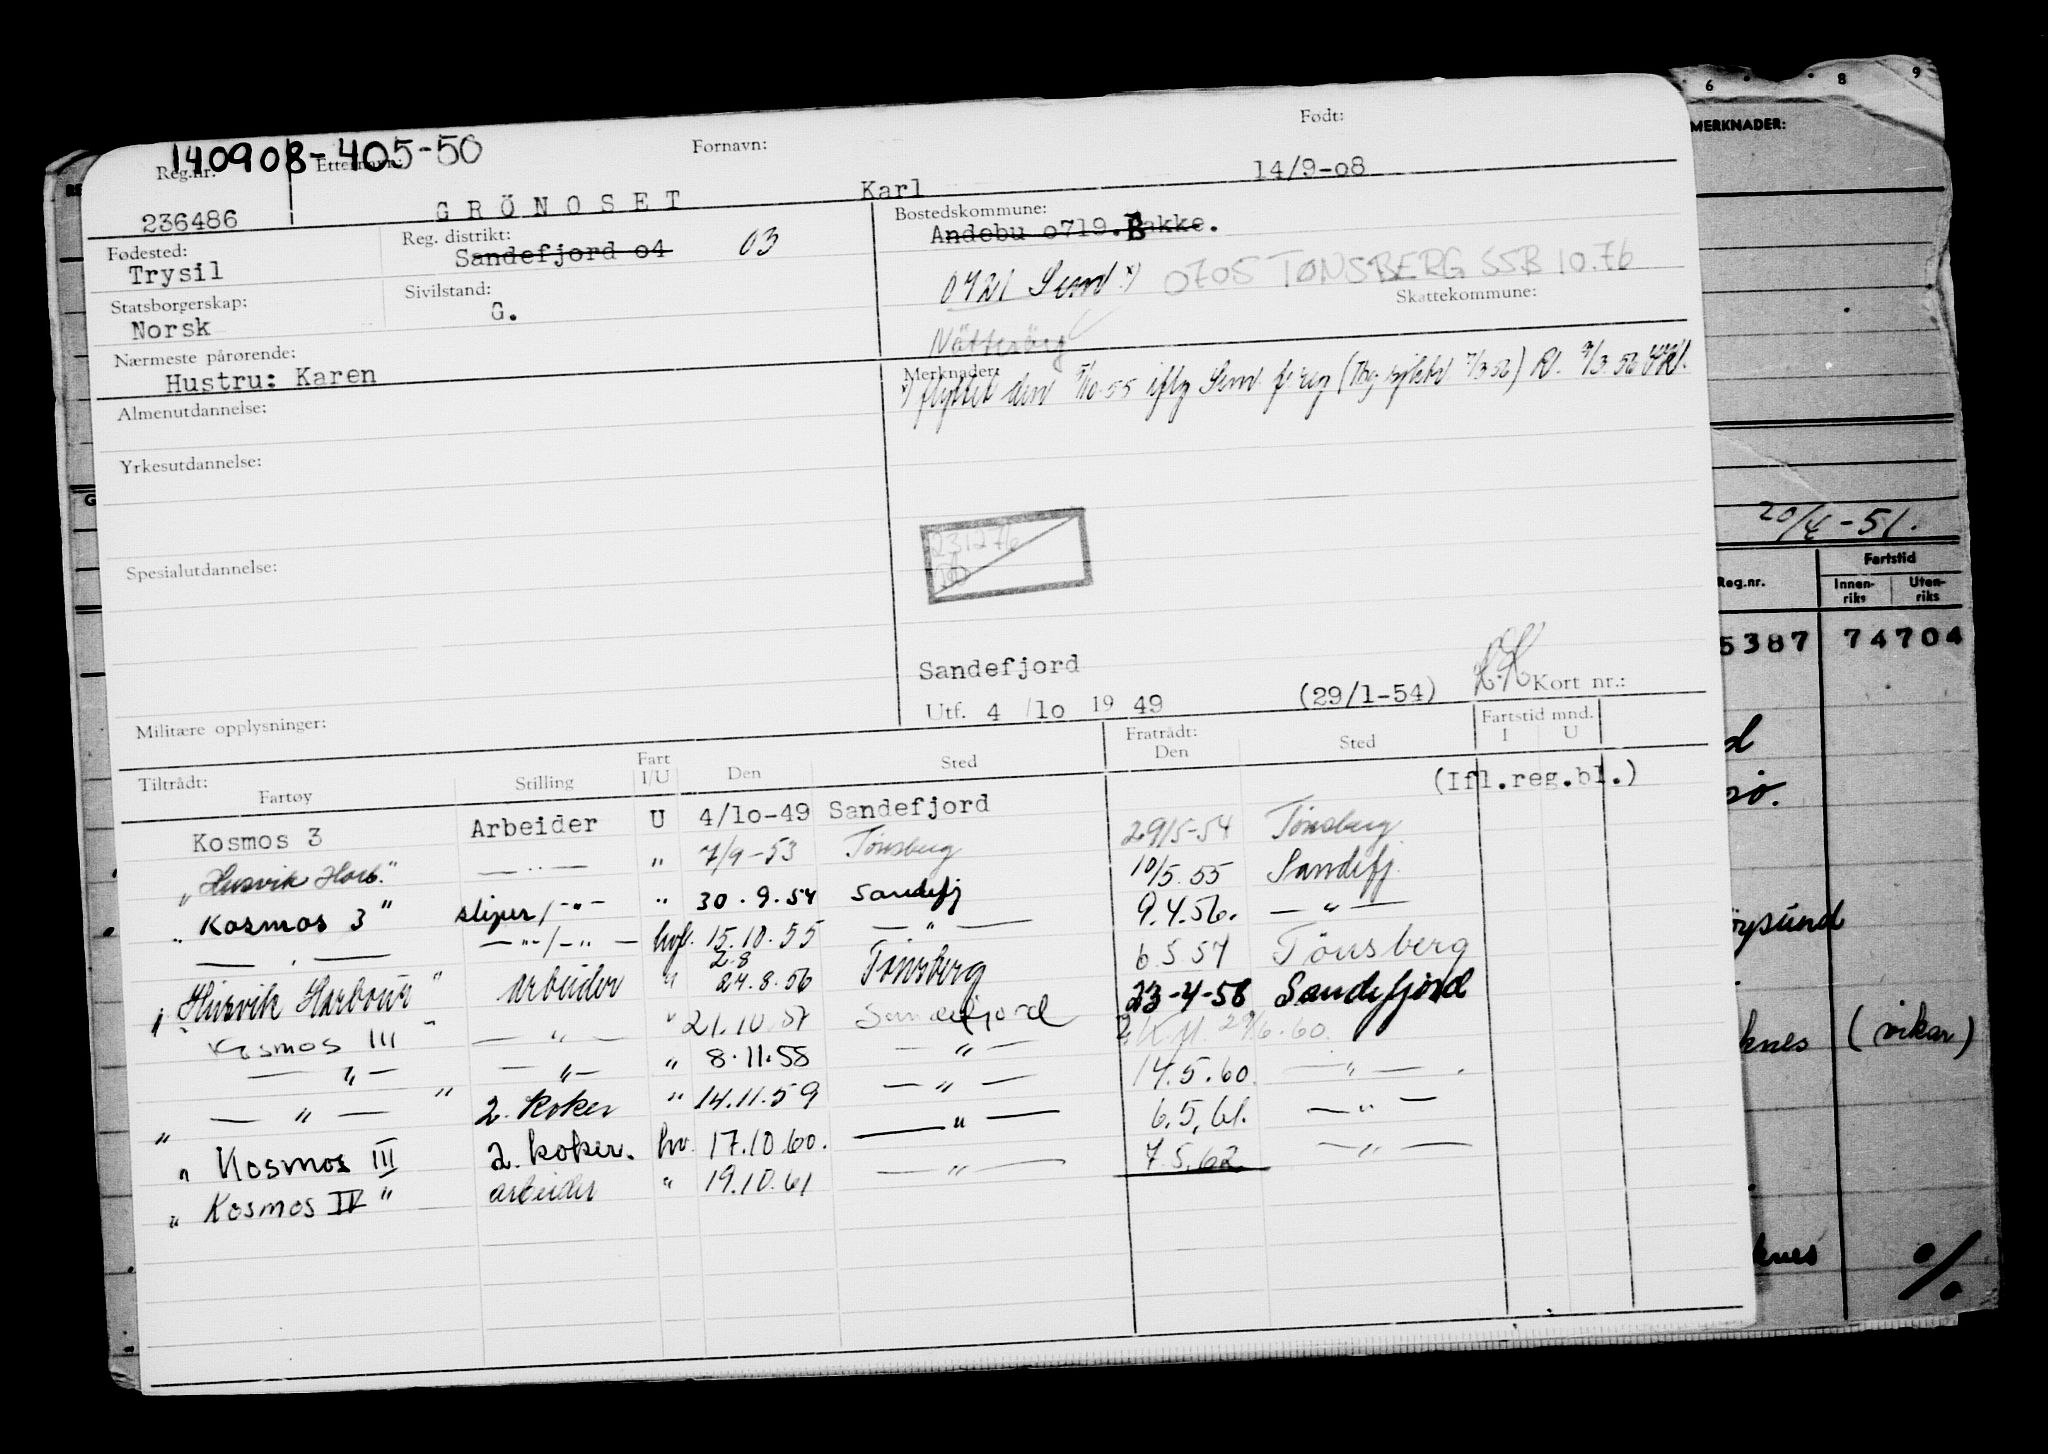 140908-405-50
Reg.nr. Etternavn: Fornavn: Født:
236486 GRÖNOSET Karl 14/9-o8
Fødested: Trysil
Reg. distrikt: Sandefjord o4 03
Bostedskommune: Andebu o719. Bakke.
0721 Sem x) 0705 TØNSBERG SSB 10.76
Statsborgerskap: Norsk
Sivilstand: G.
Skattekommune:
Nærmeste pårørende:
Hustru: Karen
Merknader:
x) flyttet den 1/10.55 iflg Sem f.reg
Almenutdannelse:
Yrkesutdannelse:
231276
Spesialutdannelse:
Sandefjord
Utf. 4/lo 19 49 (29/1-54) Kort nr.:
Militære opplysninger:
Tiltrådt: Fratrådt: Fartstid mnd.
Fartøy Stilling Fart I/U Den Sted Den Sted I U
(Ifl.reg.bl.)
Kosmos 3 Arbeider U 4/lo-49 Sandefjord
"Husvik Harb." — " — " 7/9-53 Tønsberg 29/5-54 Tønsberg
" Kosmos 3 " sliper/-"- " 30.9.54 Sandefj 10/5.55 Sandefj.
— " — — " -/-" — hvf. 15.10.55 — " — 9.4.56. — " —
" Husvik Harbour " arbeider " 28 24.8.56 Tönsberg 6.5.57 Tönsberg
" Kosmos III " — " — " 21.10.57 Sandefjord 23-4-58 Sandefjord
— " — — " — " 8.11.58 — " — 29/6.60.
" — " — " 2. koker " 14.11.59 — " — 14.5.60. — " — .
" Kosmos III 2. koker. hv. 17.10.60. — " — 6.5.61. — " —
" Kosmos IV " arbeider " 19.10.61 — " — 7.5.62 — " —
6 8 9
MERKNADER:
20/4-51.
Reg.nr. Fartstid
Innenriks Utenriks
5387 74704
(vikar)